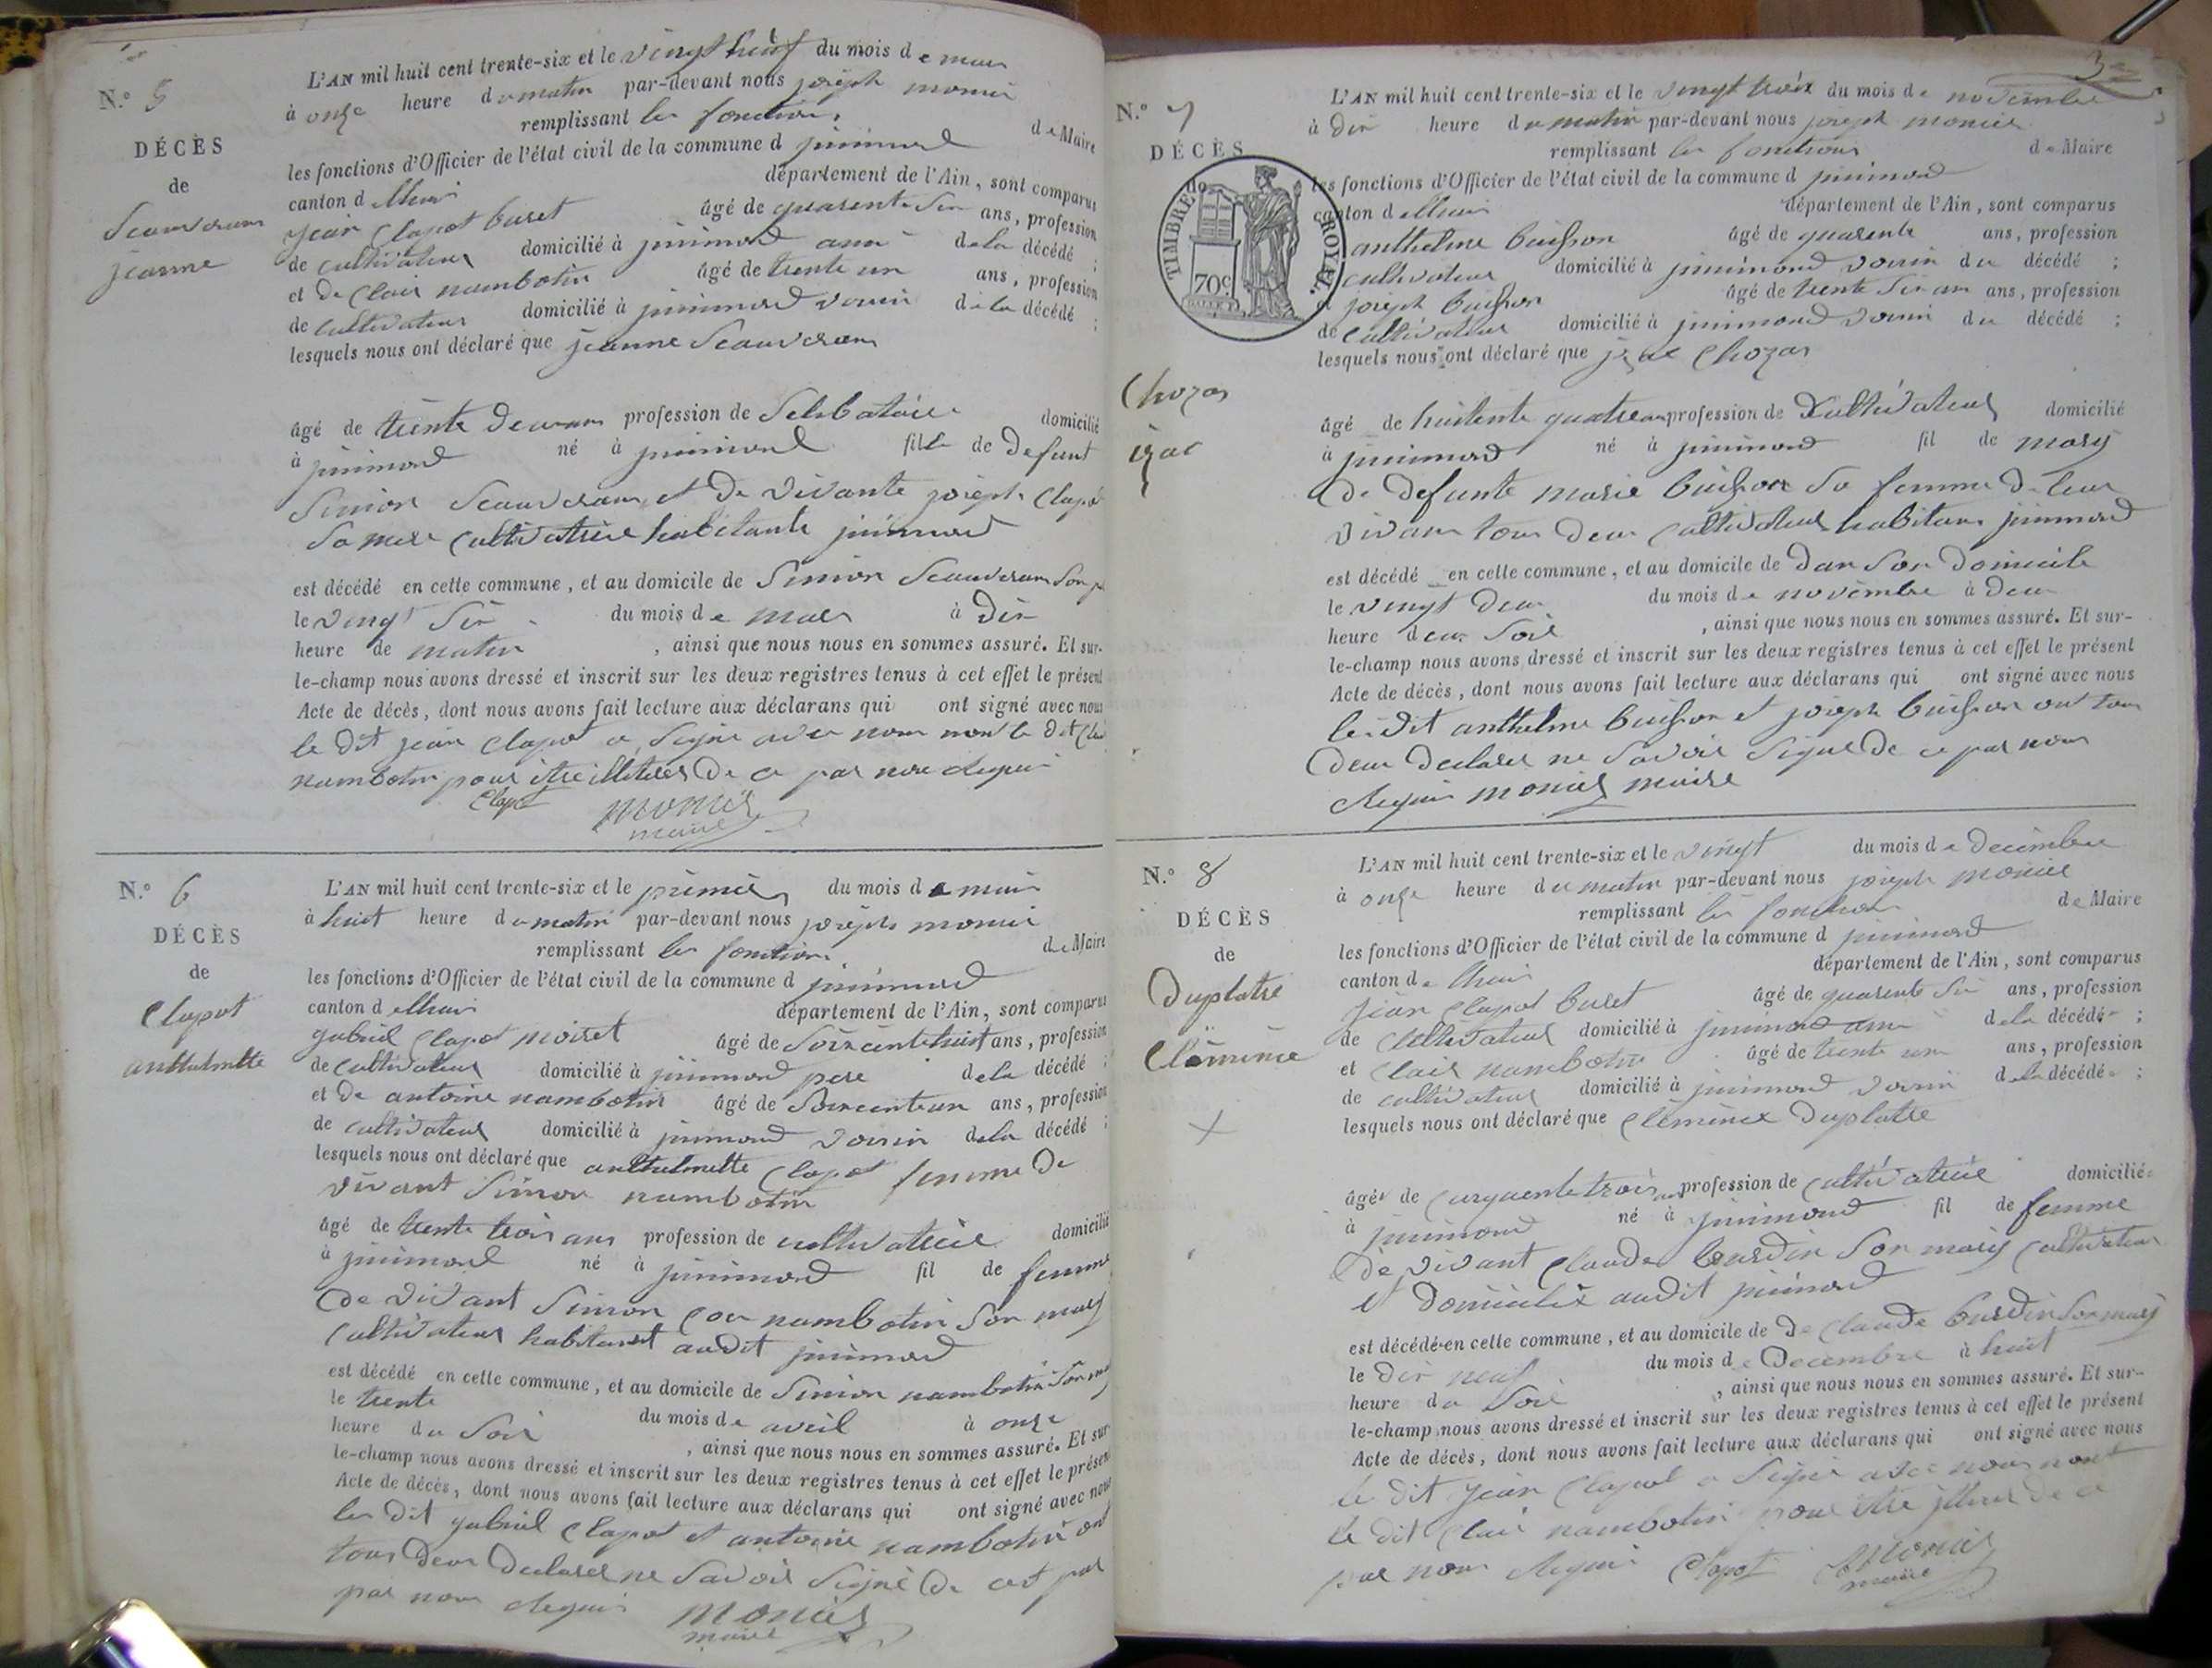 N.° 5
DÉCÈS
de
jeanne
L'AN mil huit cent trente-six et le vingt huit du mois de mars
à onze heure du matin par-devant nous joseph monier
remplissant les fonctions de Maire
les fonctions d'Officier de l'état civil de la commune d
canton d département de l'Ain, sont comparus
jean Clapot buret âgé de quarente six ans, profession
de cultivateur domicilié à ami de la décédé ;
et de Clair nambotin âgé de trente un ans, profession
de cultivateur domicilié à voisin de la décédé ;
lesquels nous ont déclaré que jeanne
âgé de trente deux ans profession de domicilié
à né à fille de defunt
Simon et de vivante joseph Clapot
Sa mere Cultivatrice habitante
est décédé en cette commune, et au domicile de Simon
le vingt Six du mois de mars à Dix
heure de matin , ainsi que nous nous en sommes assuré. Et sur-
le-champ nous avons dressé et inscrit sur les deux registres tenus à cet effet le présent
Acte de décès, dont nous avons fait lecture aux déclarans qui ont signé avec nous
le dit jean Clapot a Signé avec nous non le dit Clair
nambotin pour être illiteré De ce par nous
Clapot monier
maire
N.° 6
DÉCÈS
de
Clapot
anthelmette
L'AN mil huit cent trente-six et le premier du mois de mai
à huit heure du matin par-devant nous joseph monier
remplissant les fonctions de Maire
les fonctions d'Officier de l'état civil de la commune d
canton d département de l'Ain, sont comparus
gabriel Clapot moiret âgé de Soixcente huit ans, profession
de Cultivateur domicilié à pere de la décédé ;
et de antoine nambotin âgé de Soixcente un ans, profession
de Cultivateur domicilié à voisin de la décédé ;
lesquels nous ont déclaré que anthelmette Clapot femme De
vivant Simon nambotin
âgé de trente trois ans profession de cultivatrice domicilié
à né à fil de femme
De vivant Simon nambotin Son mary
Cultivateur habitant audit
est décédé en cette commune, et au domicile de Simon nambotin Son
le trente du mois de avril à onze
heure du Soir , ainsi que nous nous en sommes assuré. Et sur
le-champ nous avons dressé et inscrit sur les deux registres tenus à cet effet le présen
Acte de décès, dont nous avons fait lecture aux déclarans qui ont signé avec nous
les dit gabriel Clapot et antoine nambotin ont
tous Deux Declarer ne Savoir Signé De
par nous monier
maire
N.° 7
DÉCÈS
TIMBRE ROYAL.
70c
Chozas
izac
L'AN mil huit cent trente-six et le vingt trois du mois de novembre
à dix heure du matin par-devant nous joseph monier
remplissant les fonctions de Maire
les fonctions d'Officier de l'état civil de la commune d
canton d département de l'Ain, sont comparus
anthelme buisson âgé de quarente ans, profession
cultivateur domicilié à voisin du décédé ;
joseph buisson âgé de trente Six ans ans, profession
de Cultivateur domicilié à voisin du décédé ;
lesquels nous ont déclaré que Chozas
âgé de huitente quatre ans profession de Cultivateur domicilié
à né à fil de mary
De defunte marie buisson Sa femme De leur
vivant tous deux Cultivateur habitans
est décédé en cette commune, et au domicile de Dans Son Domicile
le vingt Deux du mois de novembre à deux
heure deux Soir , ainsi que nous nous en sommes assuré. Et sur-
le-champ nous avons dressé et inscrit sur les deux registres tenus à cet effet le présent
Acte de décès, dont nous avons fait lecture aux déclarans qui ont signé avec nous
les dit anthelme buisson et joseph buisson ont tous
Deux Declarer ne Savoir Signer De ce par nous
monier maire
N.° 8
DÉCÈS
de
Duplatre
Clemence
L'AN mil huit cent trente-six et le vingt du mois de Decembre
à onze heure du matin par-devant nous joseph monier
remplissant les fonctions de Maire
les fonctions d'Officier de l'état civil de la commune d
canton de département de l'Ain, sont comparus
jean Clapot buret âgé de quarente Six ans, profession
de Cultivateur domicilié à ami de la décédé ;
et Clair nambotin âgé de trente un ans, profession
de cultivateur domicilié à voisin de la décédé ;
lesquels nous ont déclaré que Clemence Duplatre
âgé de cinquente trois ans profession de Cultivatrice domicilié
à né à fil de femme
De vivant Claude burdin Son mary Cultivateur
et Domicilié audit
est décédé en cette commune, et au domicile de De Claude burdin Son mary
le Dix neuf du mois de Decembre à huit
heure du Soir , ainsi que nous nous en sommes assuré. Et sur-
le-champ nous avons dressé et inscrit sur les deux registres tenus à cet effet le présent
Acte de décès, dont nous avons fait lecture aux déclarans qui ont signé avec nous
le dit jean Clapot a Signé avec nous non
le dit Clair nambotin pour être De ce
par nous Clapot monier
maire